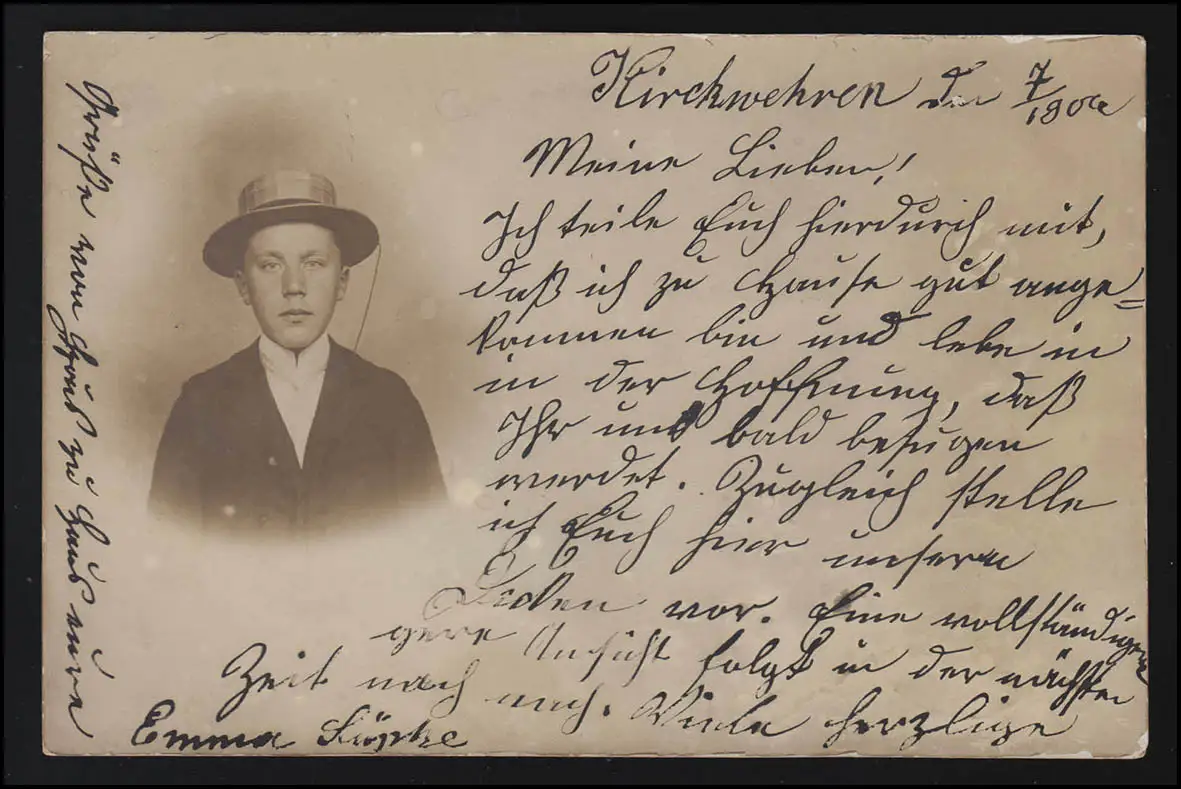 Kirchwehren den 7/190
Meine Lieben!
Ich teile Euch hierdurch mit,
daß ich zu Hause gut ange=
kommen bin und lebe in
in der Hoffnung, daß
Ihr uns bald besugen
werdet. Zugleich stelle
ich Euch hier unsern
vor. Eine vollständi
gere Ansicht folgt in der nächsten
Zeit nach nach. Viele herzlige
Grüße von Haus zu Haus eure
Emma Söpke